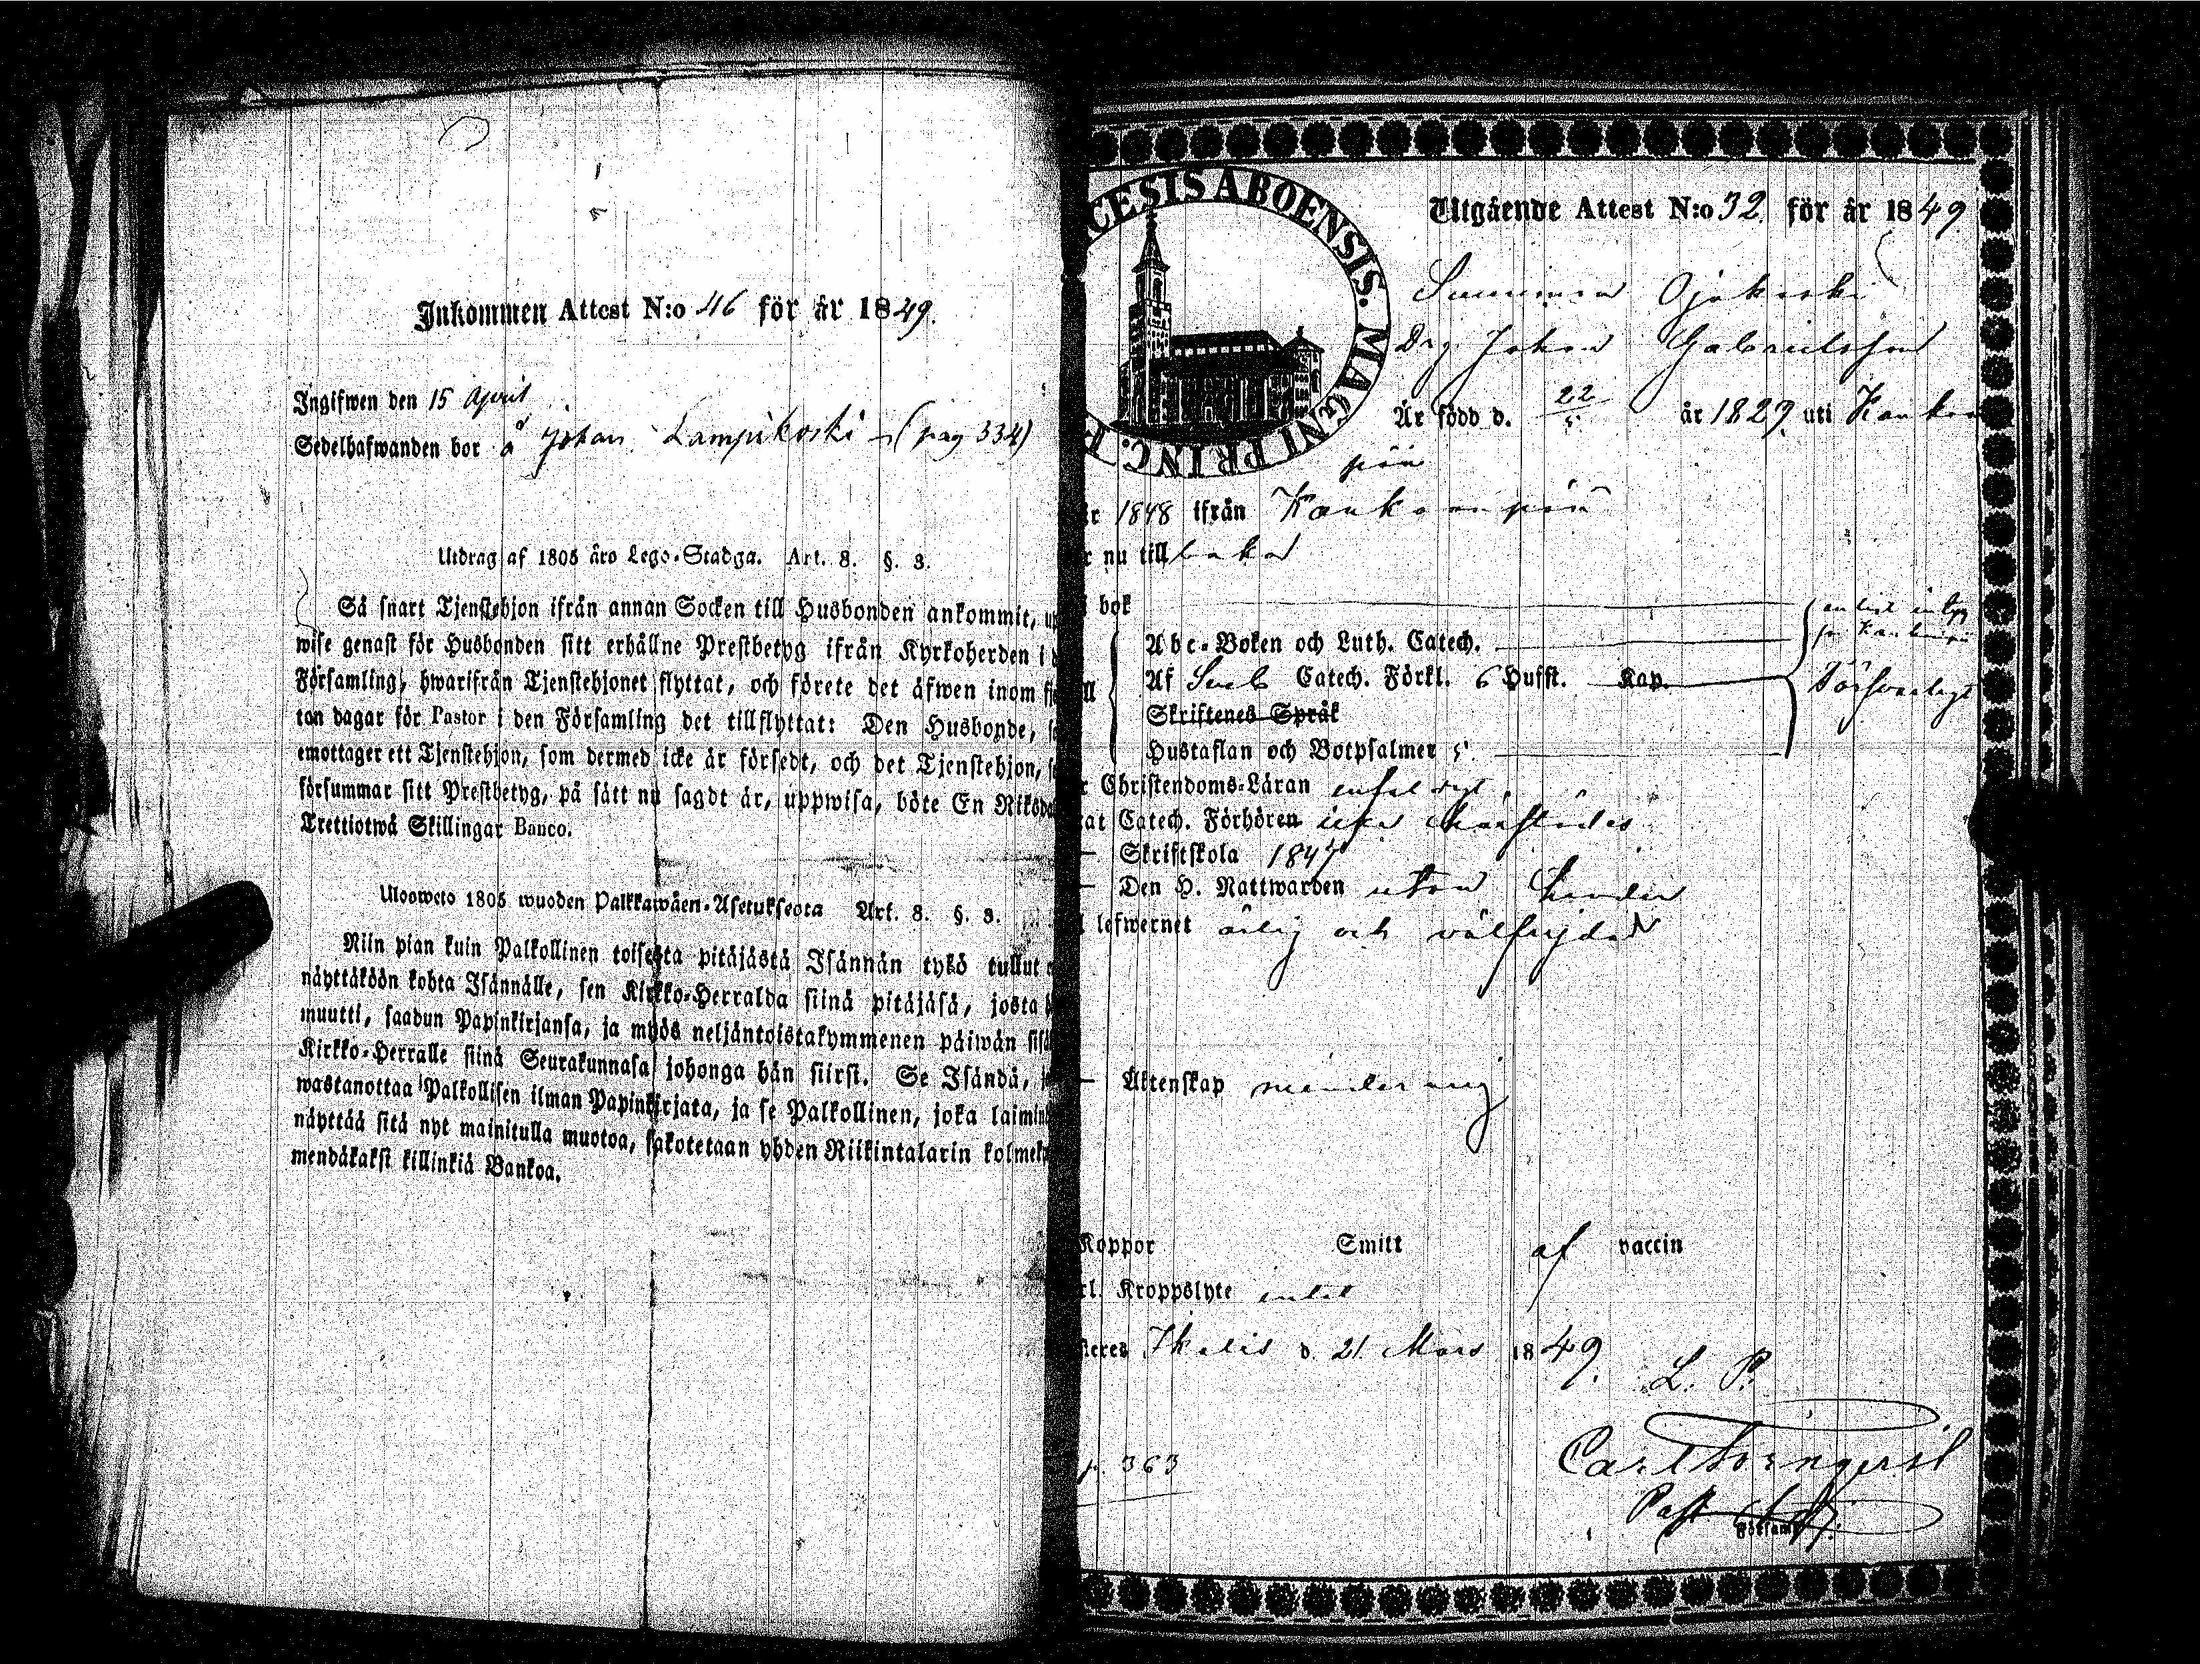 Inkommen Attest N:o 46 för år 1849.
Ingifwen den 15 April
Sedelhafwanden bor å Johan Lampikoski (pag 334)
Utdrag af 1805 års Lego-Stadga. Art. 8. §. 3.
Så snart Tjenstehjon ifrån annan Socken till Husbonden ankommit, up
wise genast för Husbonden sitt erhållne Prestbetyg ifrån Kyrkoherden i d
Församling, hwarifrån Tjenstehjonet flyttat, och förete det äfwen inom fj
ton dagar för Pastor i den Församling det tillflyttat: Den Husbonde, s
emottager ett Tjenstehjon, som dermed icke är försedt, och det Tjenstehjon, s
försummar sitt Prestbetyg, på sätt nu sagdt är, uppwisa, böte En Riksda
Trettiotwå Skillingar Banco.
Uloswets 1805 wuoden Palkkawäen-Asetuksesta Art. 8. §. 3.
Niin pian kuin Palkollinen toisesta pitäjästä Isännän tykö tullut
näyttäköön kohta Isännälle, sen Kirkko-Herralda siinä pitäjäsä, josta h
muutti, saadun Papinkirjansa, ja myös neljäntoistakymmenen päiwän sisä
Kirkko-Herralle siinä Seurakunnasa johonga hän siirst. Se Isändä, j
wastanottaa Palkollisen ilman Papinkirjata, ja se Palkollinen, joka laimin
näyttää sitä nyt mainitulla muotoa, sakotetaan yhden Riikintalarin kolmek
mendäkaksi killinkiä Bankoa.
CESIS ABOENSIS. MAGNI PRINC. F
Utgående Attest N:o 32 för år 1849
Suuniemi Ojakoski
Drg. Johan Gabrielsson
Är född d. 22/5 år 1829 uti Kankaan
pää
år 1848 ifrån Kankaanpää
r nu tillbaka
i bok
Abc-Boken och Luth. Catech.
ll Af Sveb Catech. Förkl. 6 Hufst. Kap.
Försvarligt
Skriftenes Språk
Hustaflan och Botpsalmer 5
r Christendoms-Läran enfaldigt
at Catech. Förhören
— Skriftskola 1847
— Den H. Nattwarden utan hinder
lefwernet ärlig och välfrejdad
— Äktenskap minderårig
Koppor Smitt af vaccin
rl. Kroppslyte intet
steres Ikalis d. 21 Mars 1849.
L. P.
p. 363
Carl
Past
Församl